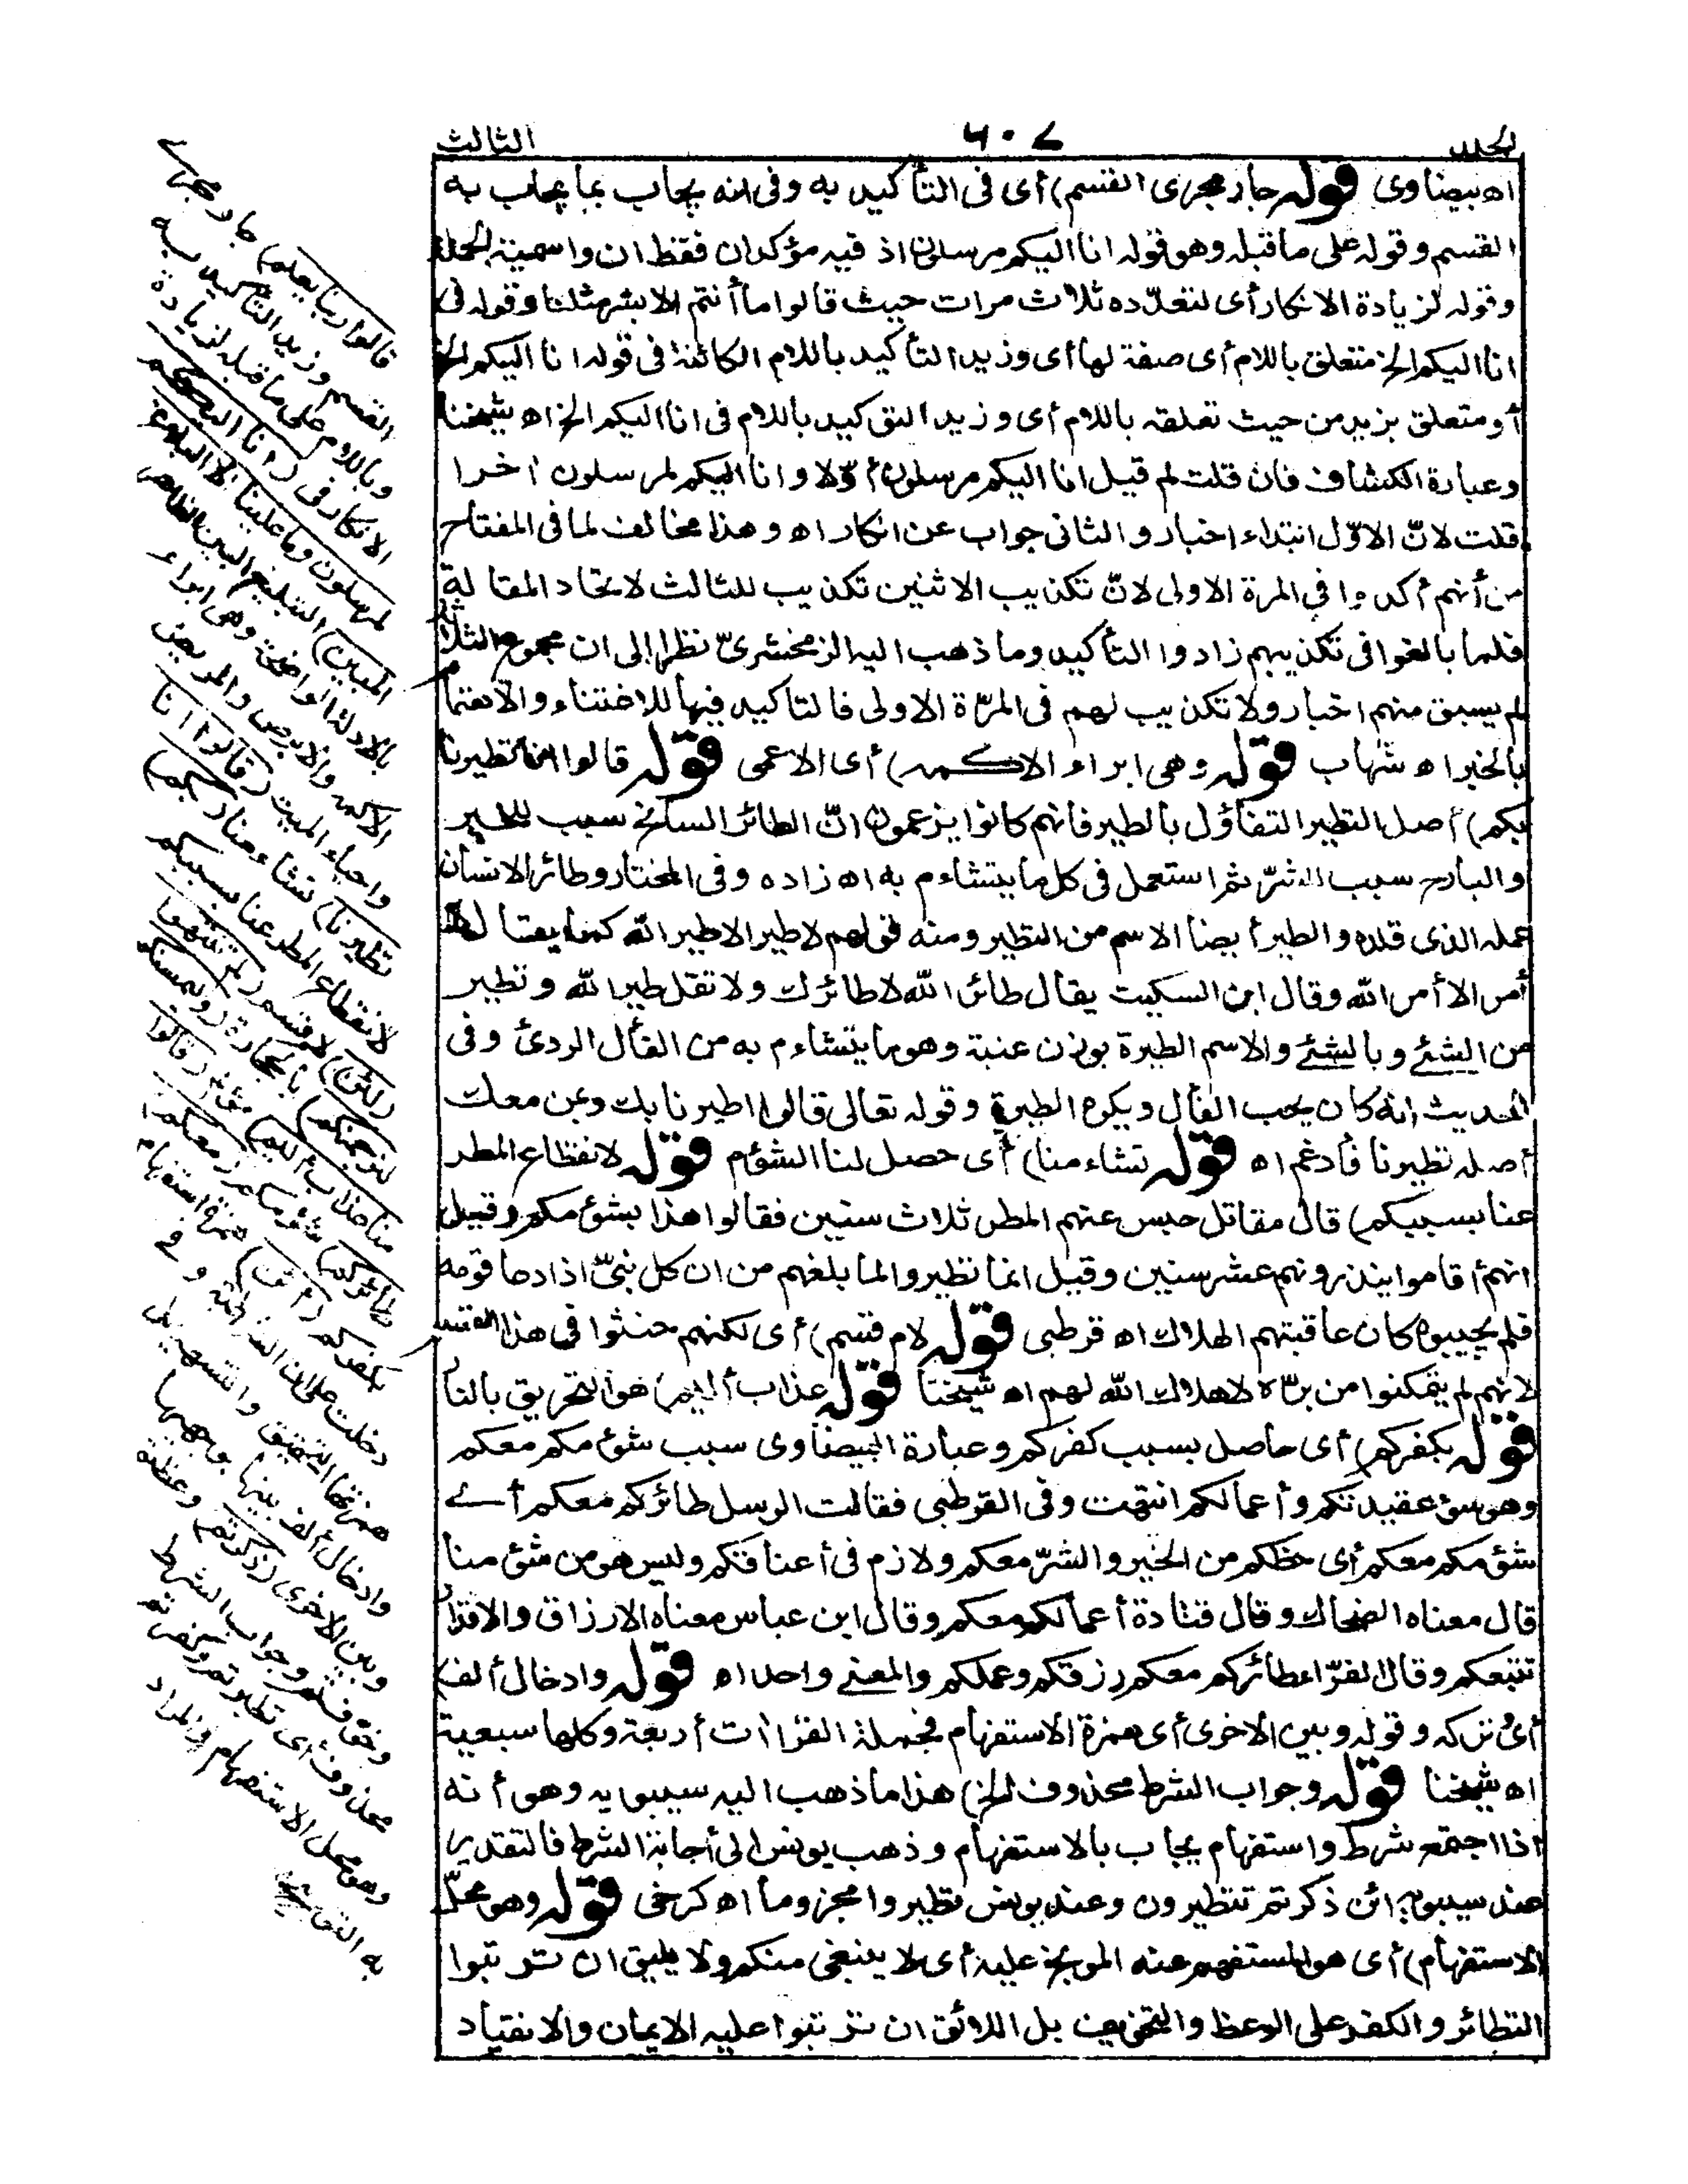 الجلد
٦٠٧
الثالث
اه بيضاوى قوله جار مجرى القسم) أى فى التأكيد به وفى انه يجاب بما يجاب به
القسم وقوله على ما قبله وهو قوله انا اليكم مرسلون اذ فيه مؤكدان فقط ان واسمية الجملة
وقوله لزيادة الانكار أى لتعدّده ثلاث مرات حيث قالوا ما أنتم الا بشر مثلنا وقوله فى
انا اليكم الخ متعلق باللام أى صفة لها أى وزيد التأكيد باللام الكائنة فى قوله انا اليكم الخ
أو متعلق بزيد من حيث تعلقه باللام أى وزيد التوكيد باللام فى انا اليكم الخ اه شيخنا
وعبارة الكشاف فان قلت لم قيل انا اليكم مرسلون أوّلا وانا اليكم لمرسلون اخرا
قلت لانّ الاوّل ابتداء اخبار والثانى جواب عن انكار اه وهذا مخالف لما فى المفتاح
من أنهم أكدوا فى المرة الاولى لانّ تكذيب الاثنين تكذيب للثالث لاتحاد المقالة
فلما بالغوا فى تكذيبهم زادوا التأكيد وما ذهب اليه الزمخشرىّ نظرا الى ان مجموع الثلاثة
لم يسبق منهم اخبار ولا تكذيب لهم فى المرّة الاولى فالتأكيد فيها للاعتناء والاهتمام
بالخبر اه شهاب قوله وهى ابراء الاكمه) أى الاعمى قوله قالوا انا تطيرنا
بكم) أصل التطير التفاؤل بالطير فانهم كانوا يزعمون انّ الطائر السانح سبب للخير
والبارح سبب للشرّ ثم استعمل فى كل ما يتشاءم به اه زاده وفى المختار وطائر الانسان
عمله الذى قلده والطير أيضا الاسم من التطير ومنه قولهم لا طير الا طير الله كما يقال لا
أمر الا أمر الله وقال ابن السكيت يقال طائر الله لا طائرك ولا تقل طير الله وتطير
من الشئ وبالشئ والاسم الطيرة بوزن عنبة وهو ما يتشاءم به من الفأل الردئ وفى
الحديث انه كان يحب الفأل ويكره الطيرة وقوله تعالى قالوا اطيرنا بك وبمن معك
أصله تطيرنا فأدغم اه قوله تشاءمنا) أى حصل لنا الشؤم قوله لانقطاع المطر
عنا بسببكم) قال مقاتل حبس عنهم المطر ثلاث سنين فقالوا هذا بشؤمكم وقيل
انهم أقاموا ينذرونهم عشر سنين وقيل انما تطيروا لما بلغهم من ان كل نبىّ اذا دعا قومه
فلم يجيبوه كان عاقبتهم الهلاك اه قرطبى قوله لام قسم) أى لكنهم حنثوا فى هذا القسم
لانهم لم يتمكنوا من برّه لاهلاك الله لهم اه شيخنا قوله عذاب أليم) هو التحريق بالنار
قوله بكفركم) أى حاصل بسبب كفركم وعبارة البيضاوى سبب شؤمكم معكم
وهو سوء عقيدتكم وأعمالكم انتهت وفى القرطبى فقالت الرسل طائركم معكم أى
شؤمكم معكم أى حظكم من الخير والشرّ معكم ولازم فى أعناقكم وليس هو من شؤمنا
قال معناه الضحاك وقال قتادة أعمالكم معكم وقال ابن عباس معناه الارزاق والاقدار
تتبعكم وقال الفرّاء طائركم معكم رزقكم وعملكم والمعنى واحد اه قوله وادخال ألف)
أى تركه وقوله وبين الاخرى أى همزة الاستفهام فجملة القراآت أربعة وكلها سبعية
اه شيخنا قوله وجواب الشرط محذوف الخ) هذا ما ذهب اليه سيبويه وهو أنه
اذا اجتمع شرط واستفهام يجاب بالاستفهام وذهب يونس الى أجابة الشرط فالتقدير
عند سيبويه ائن ذكرتم تتطيرون وعند يونس تطيروا مجزوما اه كرخى قوله وهو محلّ
الاستفهام) أى هو المستفهم عنه الموبخ عليه أى لا ينبغى منكم ولا يليق ان ترتبوا
التطائر والكفر على الوعظ والتخويف بل اللائق ان ترتبوا عليه الايمان والانقياد
قالوا ربنا يعلم) جار مجرى
القسم وزيد التأكيد به
وباللام على ما قبله لزيادة
الانكار فى (انا اليكم
لمرسلون وما علينا الا البلاغ
المبين) التبليغ البين الظاهر
بالادلة الواضحة وهى ابراء
الاكمه والابرص والمريض
واحياء الميت (قالوا انا
تطيرنا) تشاءمنا (بكم)
لانقطاع المطر عنا بسببكم
(لئن) لام قسم (لم تنتهوا
لنرجمنكم) بالحجارة (وليمسنكم
منا عذاب أليم) مؤلم (قالوا
طائركم) شؤمكم (معكم)
بكفركم (أئن) همزة استفهام
دخلت على ان الشرطية وفى
همزتها التحقيق والتسهيل
وادخال ألف بينها بوجهيها
وبين الاخرى (ذكرتم) وعظتم
وخوفتم وجواب الشرط
محذوف أى تطيرتم وكفرتم
وهو محل الاستفهام والمراد
به التوبيخ